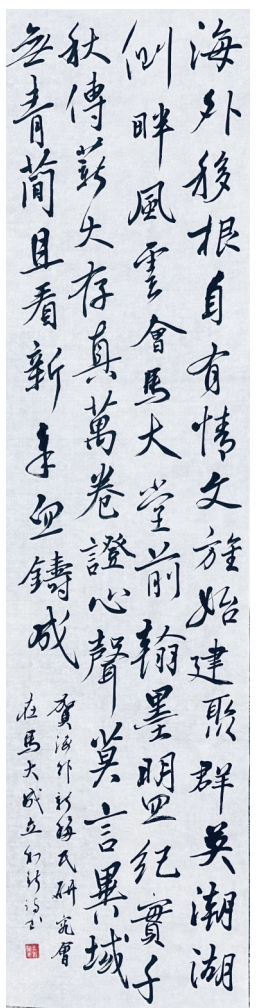 海外移根自有情文旌始建聚群英潮湖
側畔風雲會馬大堂前翰墨盟紀實千
秋傳薪火存真萬卷證心聲莫言異域
無青簡且看新章血鑄成
賀海外新移民研究會
在馬大成立